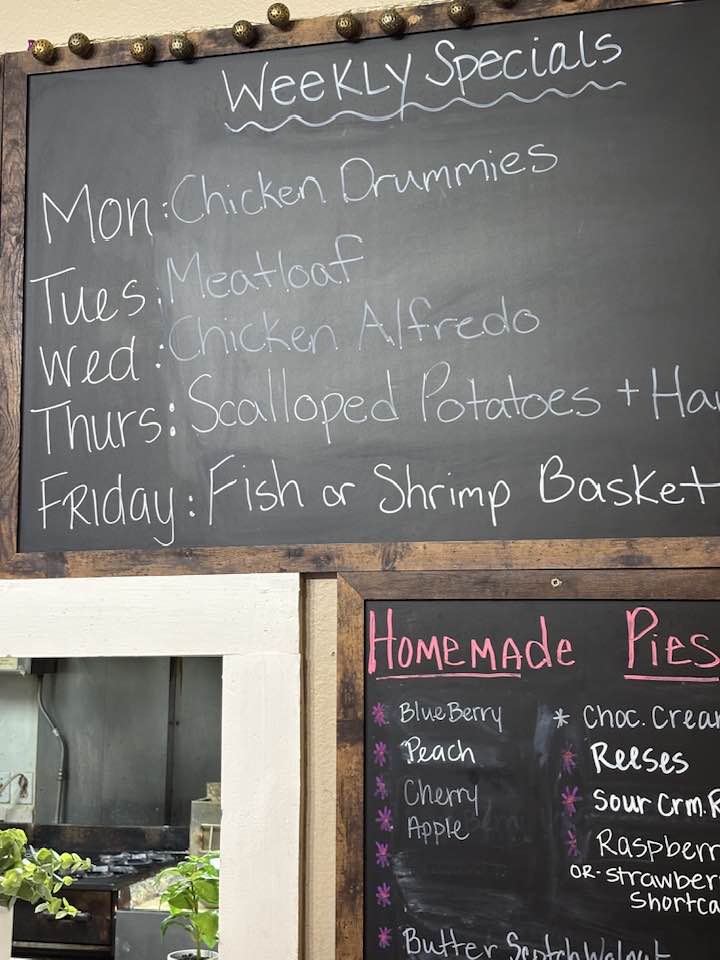 Weekly Specials
Mon: Chicken Drummies
Tues: Meatloaf
Wed: Chicken Alfredo
Thurs: Scalloped Potatoes + Ha
Friday: Fish or Shrimp Basket
Homemade Pies
BlueBerry
Peach
Cherry
Apple
Butter Scotch Walnut
Choc. Crea
Reeses
Sour Crm. R
Raspberr
OR-strawber
Shortca